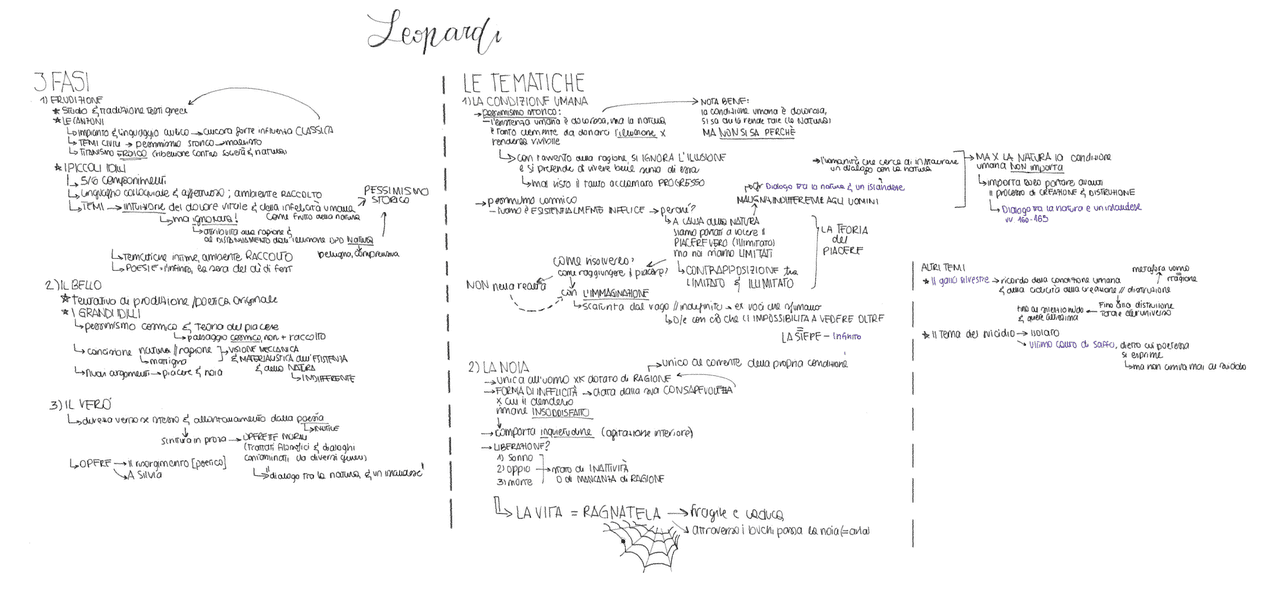 Leopardi
3 FASI
1) ERUDIZIONE
★ Studio & traduzione testi greci
★ LE CANZONI
↳ impianto & linguaggio aulico → ancora forte influenza CLASSICA
↳ TEMI CIVILI → pessimismo storico
↳ TITANISMO EROICO (ribellione contro società & natura)
★ I PICCOLI IDILLI
↳ 5/6 componimenti
↳ linguaggio colloquiale & affettuoso; ambiente RACCOLTO
↳ TEMI → intuizione del dolore vitale & della infelicità umana
ma ignorata!
come frutto della natura
PESSIMISMO STORICO
↳ attribuita alla ragione &
al DISTANZIAMENTO dall'illusione DPD NATURA
benigna, comprensiva
↳ Tematiche intime, ambiente RACCOLTO
↳ POESIE: l'infinito, la sera del dì di fest
2) IL BELLO
★ tentativo di produzione/poetica originale
★ I GRANDI IDILLI
↳ pessimismo cosmico & Teoria del piacere
↳ paesaggio cosmico, non + raccolto
↳ concezione natura // ragione
↳ matrigna
VISIONE MECCANICA
& MATERIALISTICA dell'ESISTENZA
& della NATURA
↳ INDIFFERENTE
↳ nuovi argomenti → piacere & noia
3) IL VERO
↳ diversa verso se stesso & allontanamento dalla poesia
↳ INUTILE
scrittura in prosa → OPERETTE MORALI
(trattati filosofici & dialoghi
contaminati da diversi generi)
↳ dialogo tra la natura & un islandese
↳ OPERE → Il risorgimento [poetico]
↳ A Silvia
LE TEMATICHE
1) LA CONDIZIONE UMANA
→ pessimismo storico:
– l'esistenza umana è dolorosa, ma la natura
è tanto clemente da donarci l'illusione x
renderla vivibile
→ NOTA BENE:
la condizione umana è dolorosa,
si sa chi la rende tale (la Natura)
MA NON SI SA PERCHÈ
↳ con l'avvento della ragione SI IGNORA L'ILLUSIONE
e si pretende di vivere bene senza di essa
↳ mal visto il tanto acclamato PROGRESSO
→ pessimismo cosmico
– l'uomo è ESISTENZIALMENTE INFELICE → perché?
↳ A CAUSA della NATURA
siamo portati a volere il
PIACERE VERO (illimitato)
ma noi siamo LIMITATI
↳ CONTRAPPOSIZIONE tra
LIMITATO & ILLIMITATO
MALIGNA, INDIFFERENTE AGLI UOMINI
Dialogo tra la natura & un islandese
l'umanità che cerca di instaurare
un dialogo con la natura
→ MA X LA NATURA la condizione
umana NON importa
↳ importa solo portare avanti
il processo di CREAZIONE & DISTRUZIONE
↳ Dialogo tra la natura e un islandese
vv 160-165
LA TEORIA
del
PIACERE
come risolverlo?
come raggiungere il piacere?
NON nella realtà
con L'IMMAGINAZIONE
↳ scaturita dal vago // indefinito → es voci che sfumano
↳ o/e con ciò che CI IMPOSSIBILITA A VEDERE OLTRE
=
LA SIEPE – Infinito
2) LA NOIA
→ unica all'uomo xk dotato di RAGIONE
unico al corrente della propria condizione
→ FORMA DI INFELICITÀ → data dalla sua CONSAPEVOLEZZA
x cui il desiderio
rimane INSODDISFATTO
→ comporta inquietudine (agitazione interiore)
→ LIBERAZIONE?
1) sonno
2) oppio
3) morte
→ stato di INATTIVITÀ
O di MANCANZA di RAGIONE
↳ LA VITA = RAGNATELA → fragile e caduca
↳ attraverso i buchi passa la noia (= aria)
ALTRI TEMI
★ Il gallo silvestre → ricordo della condizione umana
& della ciclicità della creazione // distruzione
metafora uomo
ragione
Fino alla distruzione
totale dell'universo
fino al silenzio nudo
& quiete altissima
★ Il Tema del suicidio → isolato
↳ Ultimo canto di Saffo, dietro cui poetessa
si esprime
↳ ma non arriva mai al suicidio